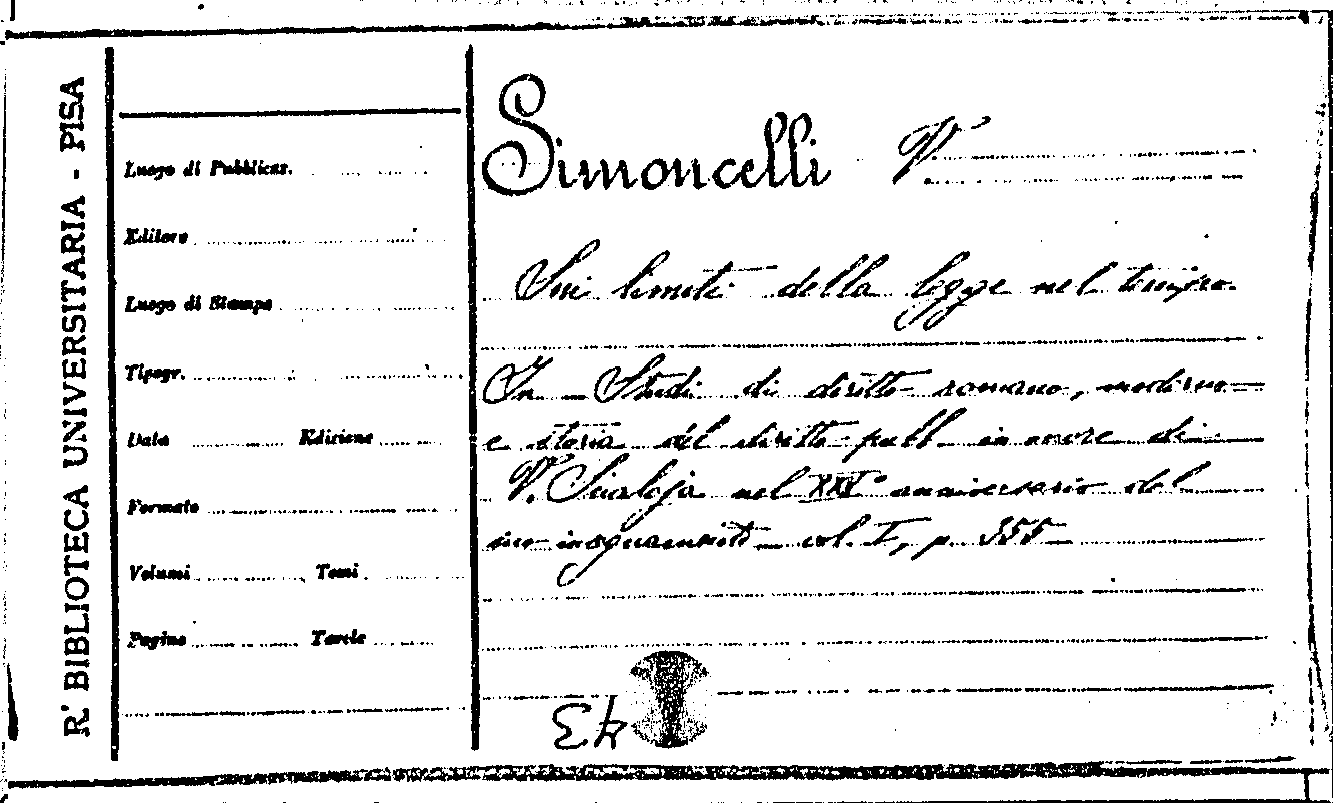 R.' BIBLIOTECA UNIVERSITARIA - PISA
Luogo di Pubblicaz.
Editore
Luogo di Stampa
Tipogr.
Data Edizione
Formato
Volumi Tomi
Pagine Tavole
Simoncelli V.
Sui limiti della legge nel tempo.
In - Studi di diritto romano, moderno
e storia del diritto pubb. in onore di
V. Scialoja nel XXV° anniversario del
suo insegnamento vol. I, p. 355
43